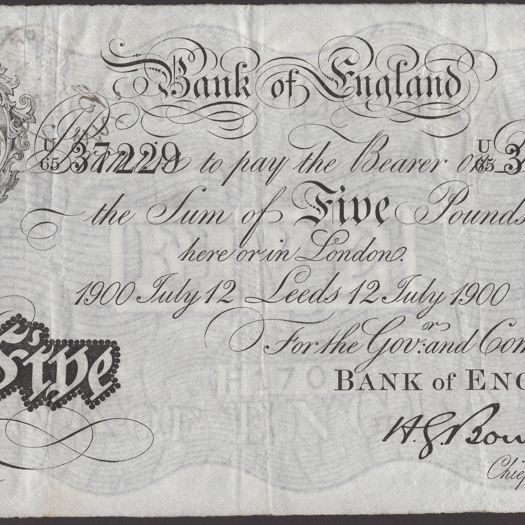 Bank of England
U/65 37229 to pay the Bearer on U/65 3
the Sum of Five Pounds
here or in London.
1900 July 12 Leeds 12 July 1900
For the Gov.r and Com
BANK of ENG
Five
H.G.Bow
Chie